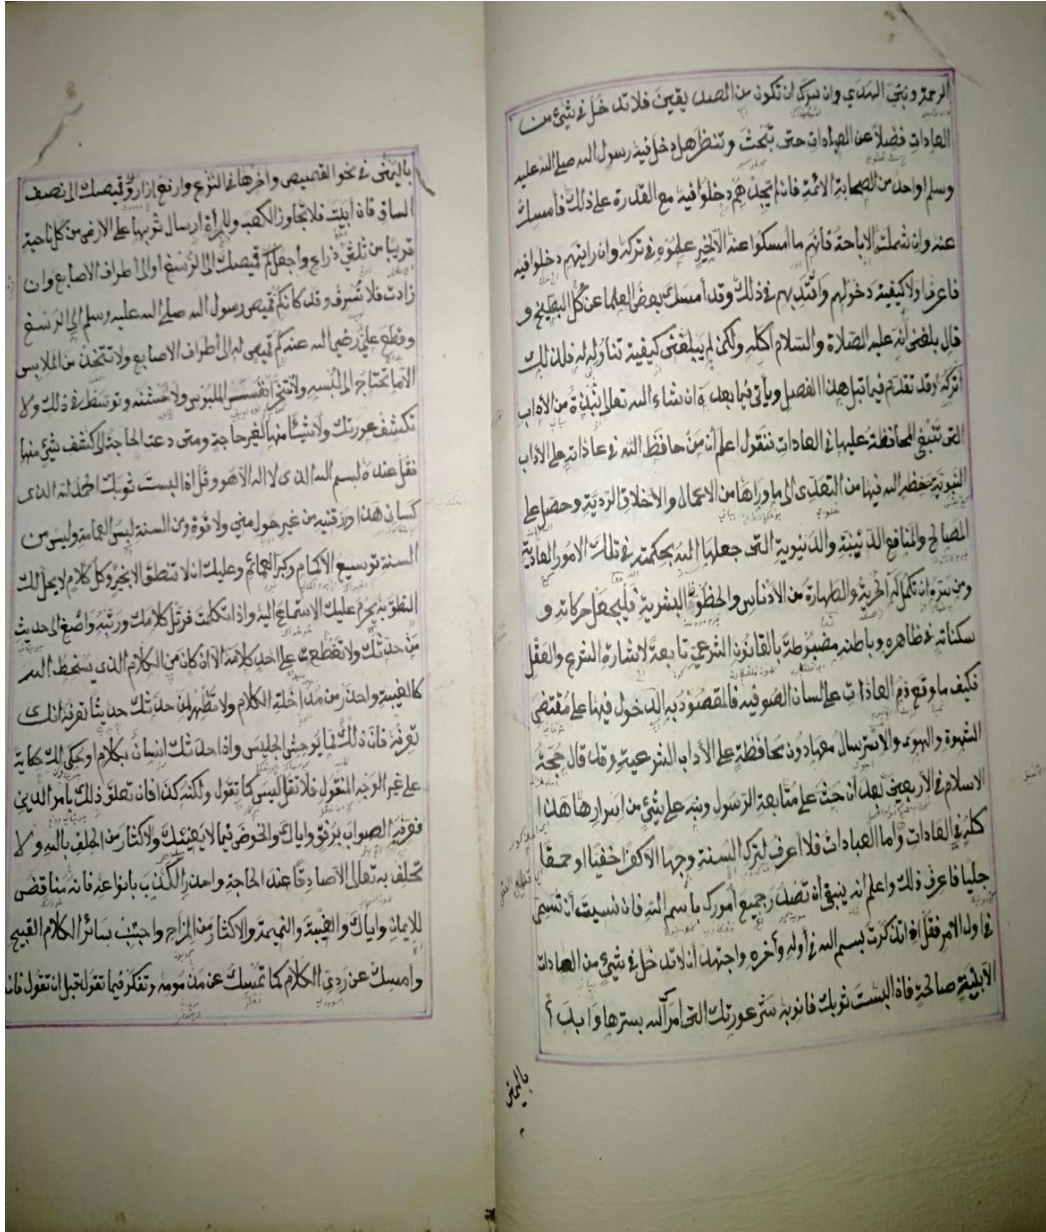 الرحمة ونبي الهدي وان سرك ان تكون من الصديقين فلا تدخل في شيئ من
العادات فضلاً عن العبادات حتى تبحث وتنظر هل دخل فيه رسول الله صلى الله عليه
وسلم او احد من الصحابة الائمة فان لم تجدهم دخلوا فيه مع القدرة على ذلك فأمسك
عنه وان شملته الاباحة فانهم ما امسكوا عنه الا لخير علموه في تركه وان رايتهم دخلوا فيه
فاعرف اولا كيفية دخولهم واقتد بهم في ذلك وقد أمسك بعض العلما عن أكل البطيخ و
قال بلغني أنه عليه الصلاة والسلام أكله ولكن لم يبلغني كيفية تناوله له فلذلك
أتركه وقد تقدم فيما قبل هذا الفصل ويأتي فيما بعده ان شاء الله تعالى نبذة من الاداب
التى تنبغى المحافظة عليها في العادات فنقول اعلم أن من حافظ الله في عاداته على الأداب
النبوية حفظه الله فيها من التعدى الى ما وراها من الاعمال والأخلاق الردية وحصل على
المصالح والمنافع الدينية والدنيوية التى جعلها الله بحكمته في تلك الامور العادية
ومن سره ان تكمل له الحرية والطهارة من الأدناس والحظوظ البشرية فليجعل حركاته و
سكناته في ظاهره وباطنه مضبوطة بالقانون الشرعي تابعة لاشارة الشرع والعقل
فكيف ما وقع ذم العادات على لسان الصوفيه فالمقصود به الدخول فيها على مقتضى
الشهوة والهوى والاسترسال معها دون محافظة على الأداب الشرعية وقد قال حجة
الاسلام في الأربعين بعد أن حث على متابعة الرسول ونبه على شيئ من اسرارها هذا
كله في العادات واما العبادات فلا اعرف لترك السنة وجها الا كفر اخفيا او حمقا
جليا فاعرف ذلك واعلم انه ينبغي أن تصدر جميع أمورك باسم الله فان نسيت أن تسمى
في اول الامر فقل اذا تذكرت بسم الله في أوله وأخره واجتهد ان لا تدخل في شيئ من العادات
الا بنية صالحة فاذا لبست ثوبك فانو به ستر عورتك التى امر الله بسترها وابدأ
باليمنى
باليمنى في نحو القميص واخرها في النزع وارفع ازارك وقميصك الى نصف
الساق فان أبيت فلا تجاوز الكعب وللمرأة ارسال ثوبها على الارض من كل ناحية
قريبا من ثلثي ذراع واجعل كم قميصك الى الرسغ او الى اطراف الاصابع وان
زادت فلا تسرف وقد كان كم قميص رسول الله صلى الله عليه وسلم الى الرسغ
وقطع على رضي الله عنه كم قميص له الى أطراف الاصابع ولا تتخذ من الملابس
الا ما تحتاج الى لبسه ولا تتحر أنفس الملبوس ولا خشنه وتوسط في ذلك ولا
تكشف عورتك ولا شيئا منها لغير حاجة ومتى دعت الحاجة الى كشف شيئ منها
فقل عنده لبسم الله الذى لا اله الا هو وقل اذا لبست ثوبك الحمد لله الذى
كسانى هذا ورزقنيه من غير حول منى ولا قوة ومن السنة لبس العمامة وليس من
السنة توسيع الأكمام وكبر العمائم وعليك ان لا تنطق الا بخير وكل كلام لا يحل لك
النطق به يحرم عليك الاستماع اليه واذا تكلمت فرتل كلامك ورتبه واصغ الى حديث
من حدثك ولا تقطع على احد كلامه الا ان كان من الكلام الذى يسخط الله
كالغيبة واحذر من مداخلة الكلام ولا تظهر لمن حدثك حديثا تعرفه انك
تعرفه فان ذلك مما يوحش الجليس واذا حدثك انسان بكلام او حكى لك حكاية
على غير الوجه المنقول فلا تقل ليس كما تقول ولكنه كذا فان تعلق ذلك بأمر الدين
فعرفه الصواب برفق واياك والخوض فيما لا يعنيك ولاكثار من الحلف بالله ولا
تحلف به تعالى الا صادقا عند الحاجة واحذر الكذب بانواعه فانه مناقض
للايمان واياك والغيبة والنميمة والاكثار من المزاح واجتنب سائر الكلام القبيح
وامسك عن ردئ الكلام كما تمسك عن مذمومه وتفكر فيما تقوله قبل ان تقول فان